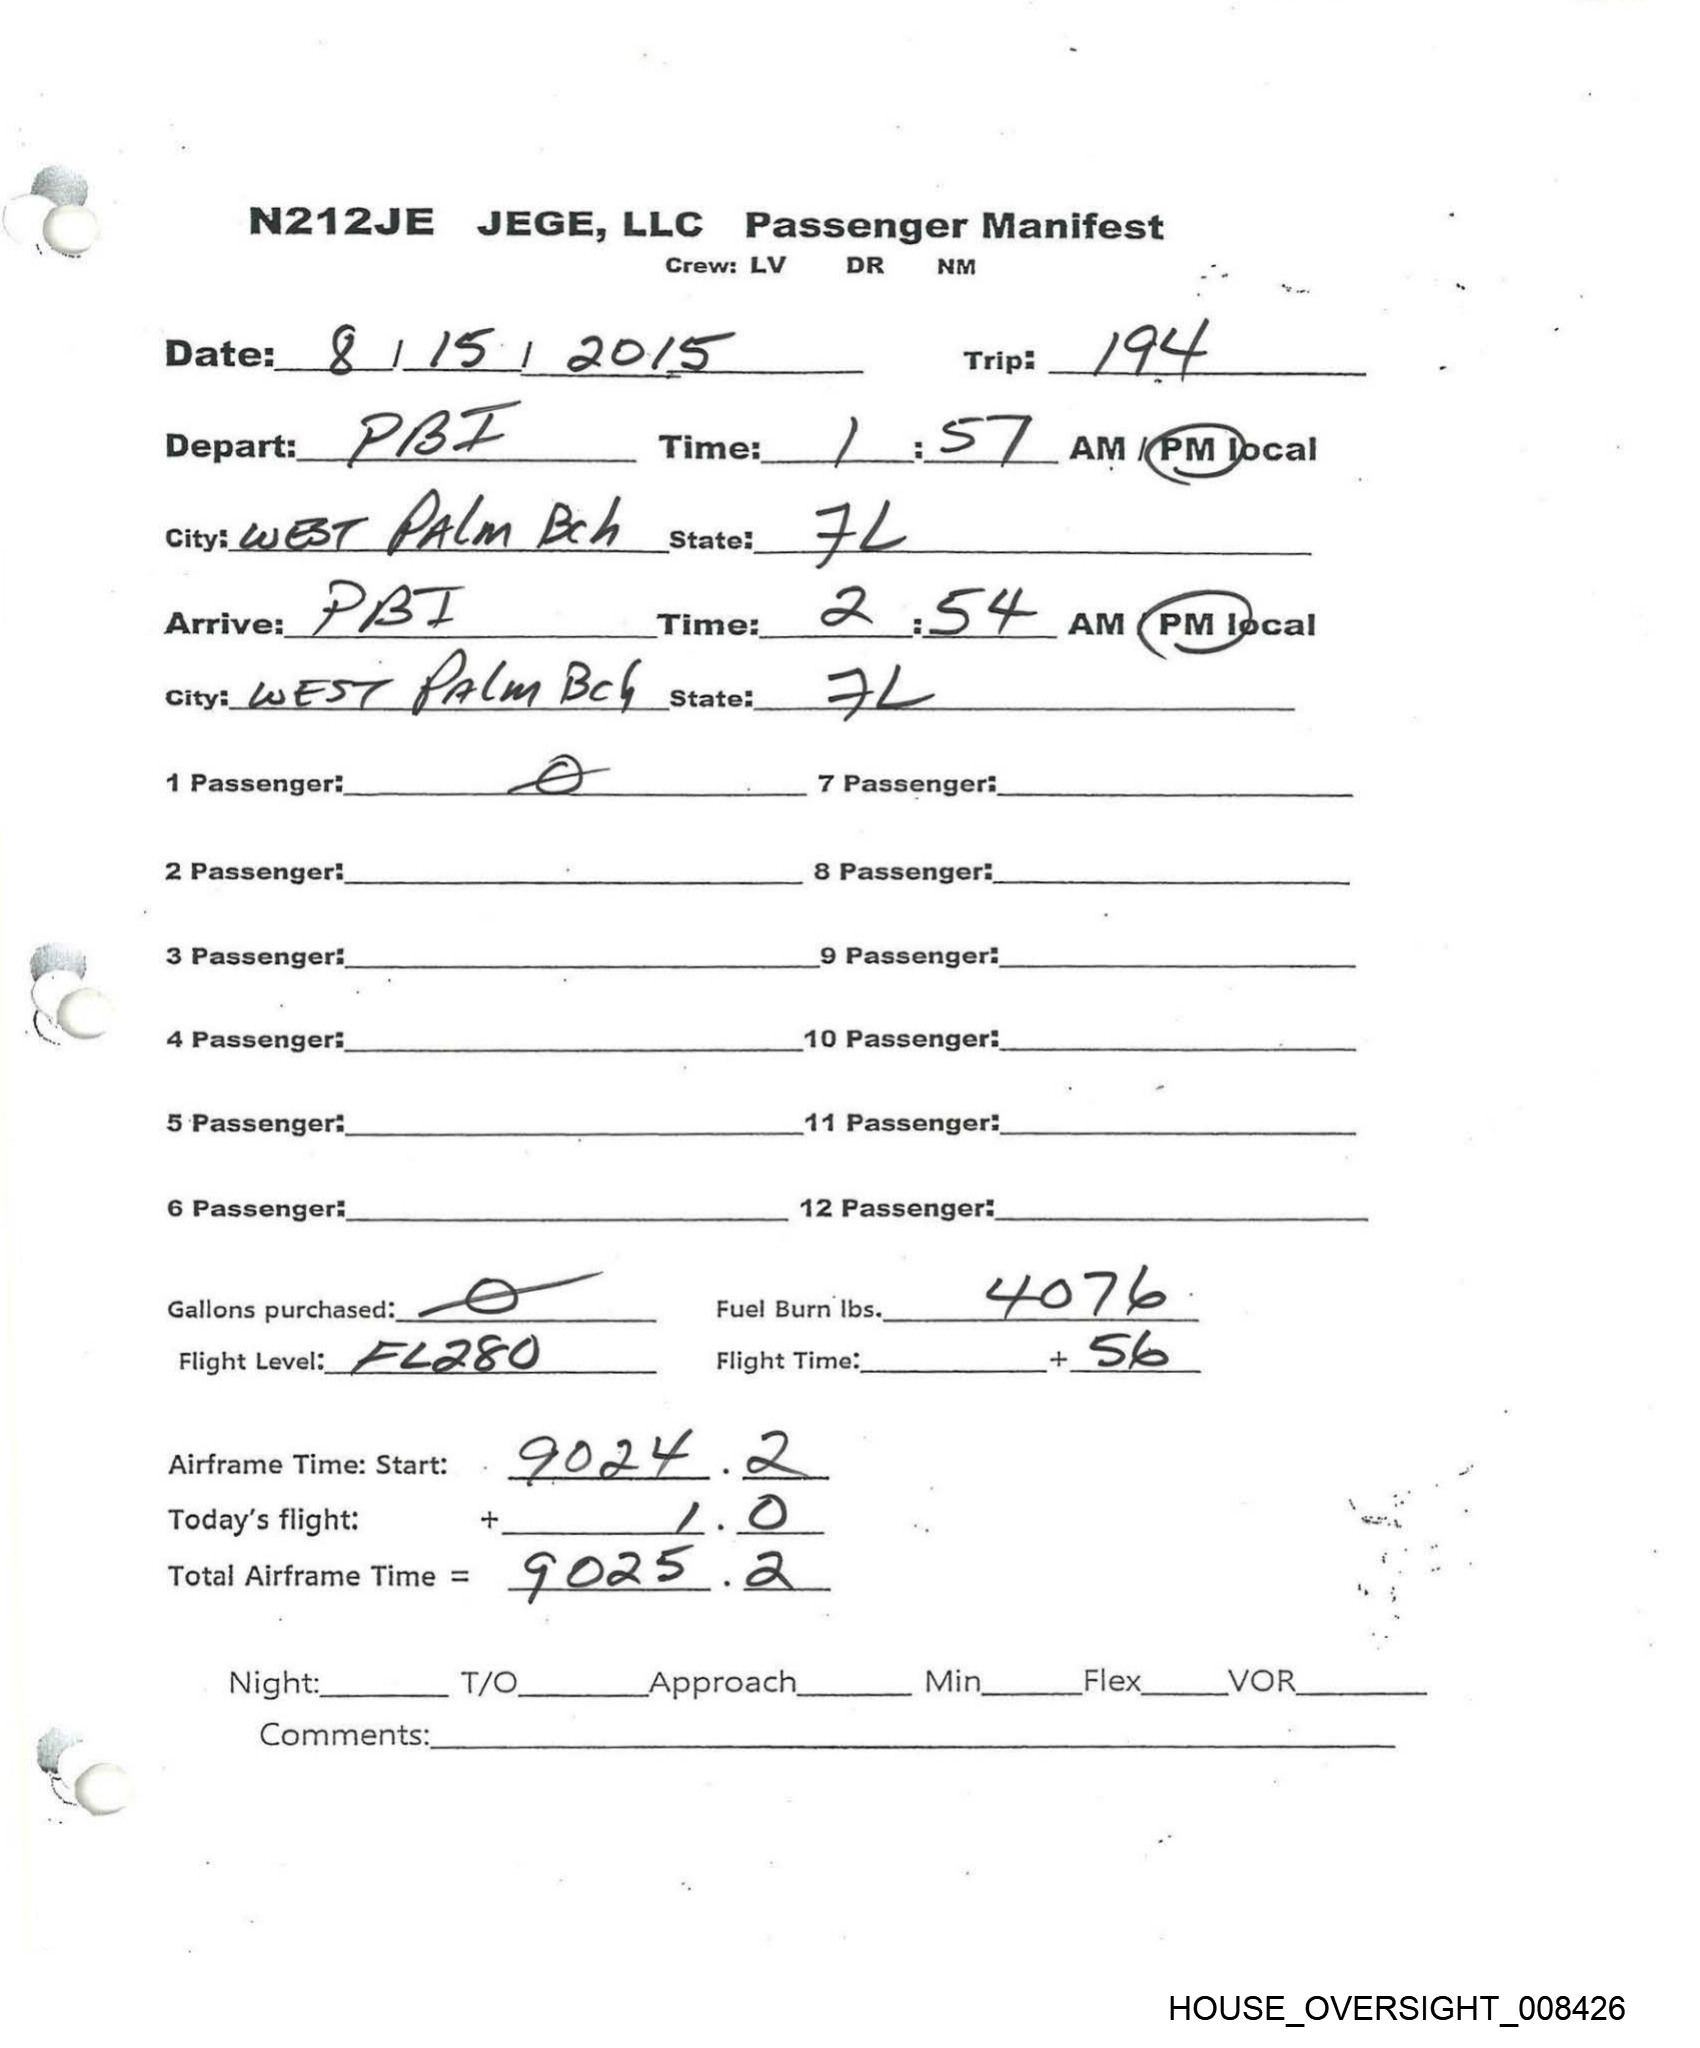 N212JE JEGE, LLC Passenger Manifest
Crew: LV DR NM
Date: 8 / 15 / 2015 Trip: 194
Depart: PBI Time: 1 : 57 AM / PM local
City: WEST PAlm Bch State: FL
Arrive: PBI Time: 2 : 54 AM / PM local
City: WEST PAlm Bch State: FL
1 Passenger: 0 7 Passenger:
2 Passenger: 8 Passenger:
3 Passenger: 9 Passenger:
4 Passenger: 10 Passenger:
5 Passenger: 11 Passenger:
6 Passenger: 12 Passenger:
Gallons purchased: 0 Fuel Burn lbs. 4076
Flight Level: FL280 Flight Time: + 56
Airframe Time: Start: 9024 . 2
Today's flight: + 1 . 0
Total Airframe Time = 9025 . 2
Night: T/O Approach Min Flex VOR
Comments:
HOUSE_OVERSIGHT_008426